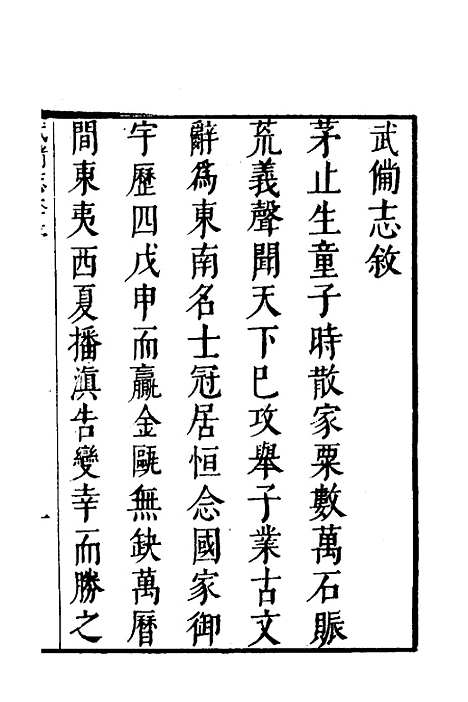 武備志敘
茅止生童子時散家粟數萬石賑
荒義聲聞天下已攻舉子業古文
辭為東南名士冠居恒念國家御
宇歷四戊申而贏金甌無缺萬曆
間東夷西夏播滇告變幸而勝之
一